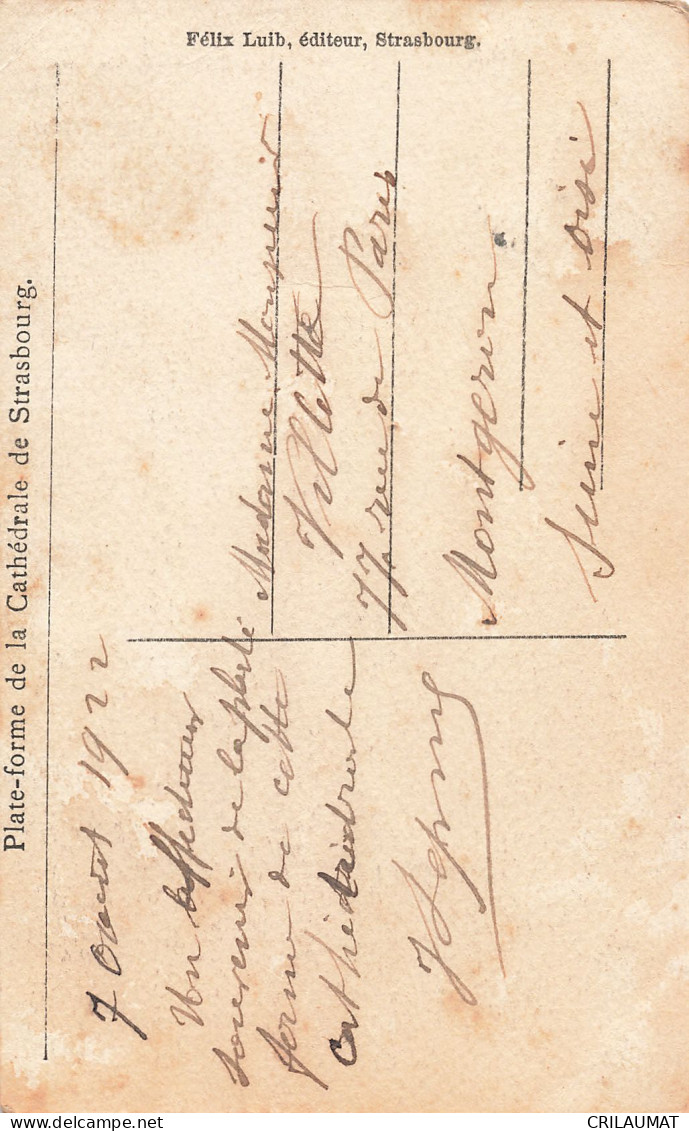 Félix Luib, éditeur, Strasbourg.
Plate-forme de la Cathédrale de Strasbourg.
7 Aout 1922
Un affectueux
souvenir de la plate
forme de cette
Cathédrale
Madame Monsieur
Villette
77 rue de Paris
Montgeron
Seine et oise
CRILAUMAT